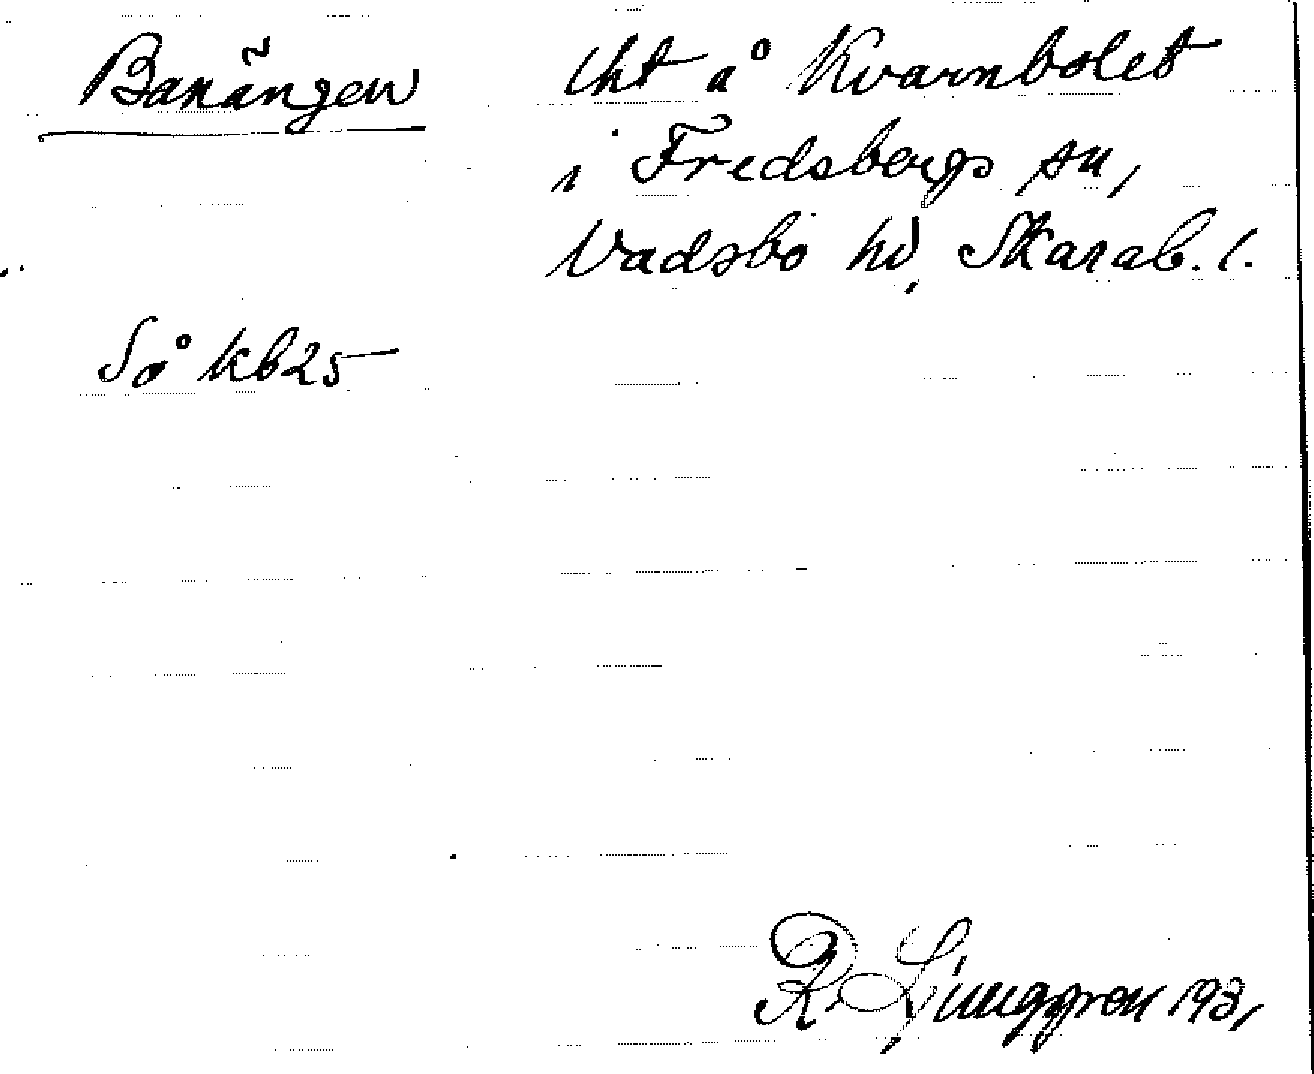 Banängen
lht å Kvarnbolet
i Fredsbergs sn,
Vadsbo hd, Skarab. l.
Så kb 25
R. Ljunggren 1931